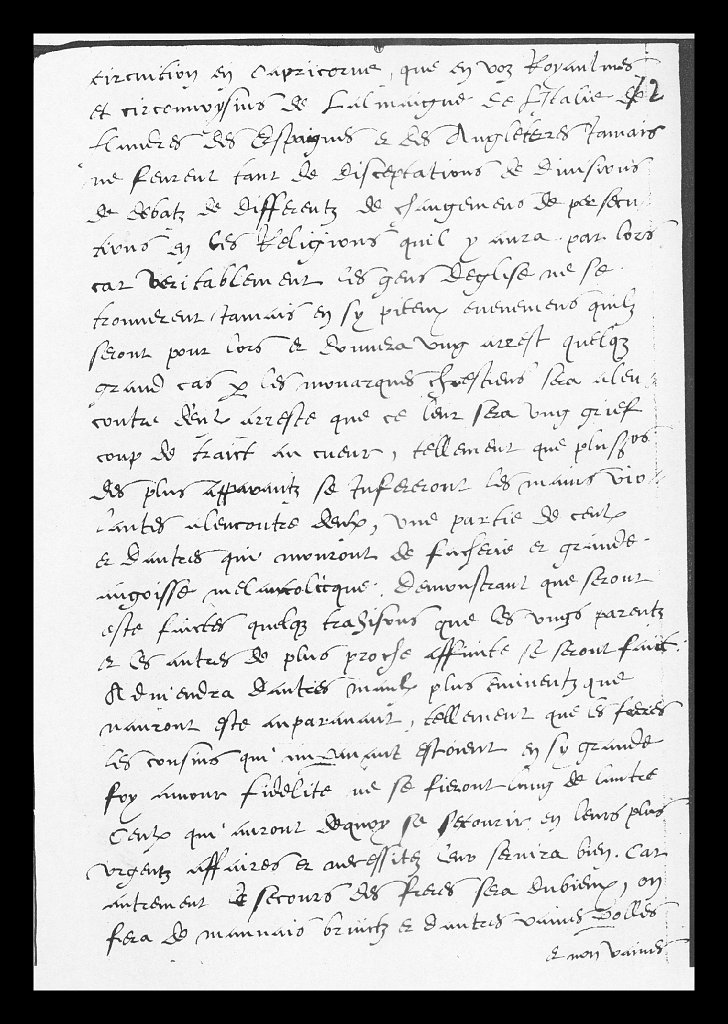 circuition en Capricorne, que en voz Royaulmes
et circonvoysins de Lalmaigne de Lytalie de 72
Flandres des Espaignes et des Angleterres Jamais
ne feurent tant de disceptations de divisions
de debatz de differentz de changemens de persecu
tions en les Religions quil y aura par lors
car veritablement les gens deglise ne se
trouverent Jamais en sy piteux evenemens quilz
seront pour lors et donnera ung arrest quelqz
grand cas p les monarques chrestiens sera alen
contre deulx arreste que ce leur sera ung grief
coup de traict au cueur, tellement que plusrs
des plus apparantz se Infereront les mains vio
lantes alencontre deulx, une partie de ceulx
et dautres qui mouront de facherie et grande
angoisse melancolicque. Demonstrant que seront
este faictes quelqz trahisons que les ungs parentz
et les autres de plus proche affinite se seront faict.
Adviendra dautres maulx plus eminentz que
nauront este auparavant, tellement que les freres
les cousins qui auparavant estoient en sy grande
foy amour fidelite ne se fieront lung de lautre
Ceulx qui auront dequoy se secourir en leurs plus
urgentz affaires et necessitez leur servira bien. Car
autrement le secours des freres sera dubieux, on
fera de mauvais bruictz et dautres vaines volles
et non vaines